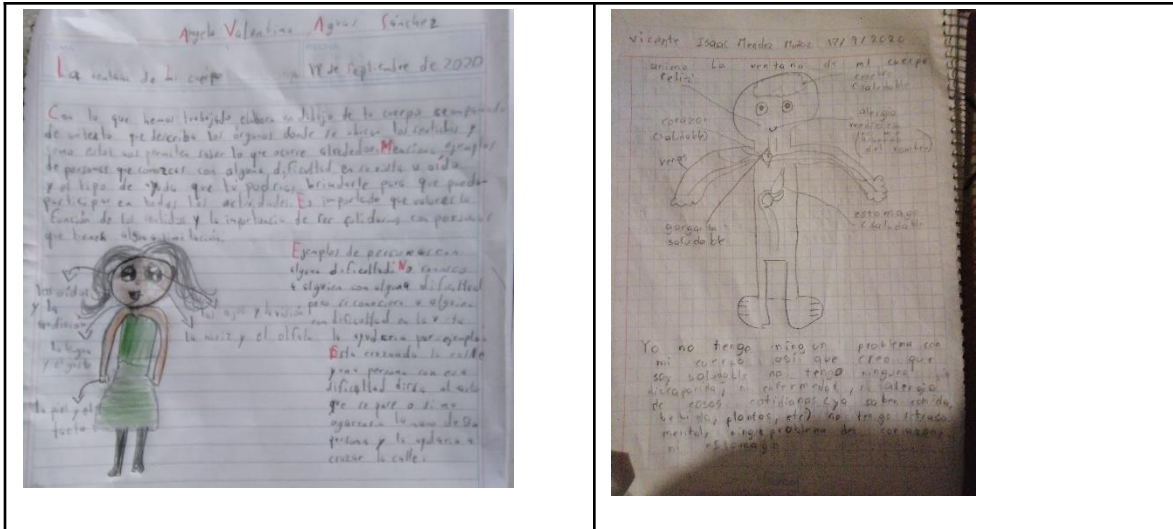 Angela Valentina Sánchez
La ventana de mi cuerpo 17 de septiembre de 2020
Con lo que hemos trabajado, elabora un dibujo de tu cuerpo acompañado
de un texto que describa los órganos donde se ubican los sentidos y
como estos nos permiten saber lo que ocurre alrededor. Menciona ejemplos
de personas que conozcas con alguna dificultad en su vista u oído
y el tipo de ayuda que tú podrías brindarle para que pueda
participar en todas las actividades. Es importante que valores la
función de los sentidos y la importancia de ser solidarios con personas
que tienen alguna limitación.
los oídos
y la
audición
la lengua
y el gusto
la piel y el
tacto
los ojos y la visión
la nariz y el olfato
Ejemplos de personas con
alguna dificultad: No conozco
a alguien con alguna dificultad
pero si conociera a alguien
con dificultad en la vista
lo ayudaría por ejemplo:
Esta cruzando la calle
y una persona con esa
dificultad diría al auto
que se pare o si no
agarraría la mano de esa
persona y la ayudaría a
cruzar la calle.
Vicente Isaac Mendez Muñoz 17/9/2020
La ventana de mi cuerpo
animo
feliz
cerebro
(saludable)
corazon
(saludable)
alergia
medicina
del nombre)
venas
garganta
saludable
estomago
(saludable)
Yo no tengo ningun problema con
mi cuerpo asi que creo que
soy saludable no tengo ninguna
discapacidad, ni enfermedad, ni alergia
de cosas cotidianas (ya saben comida,
bebida, plantas, etc) no tengo retraso
mental, ningun problema del corazon,
ni estomago